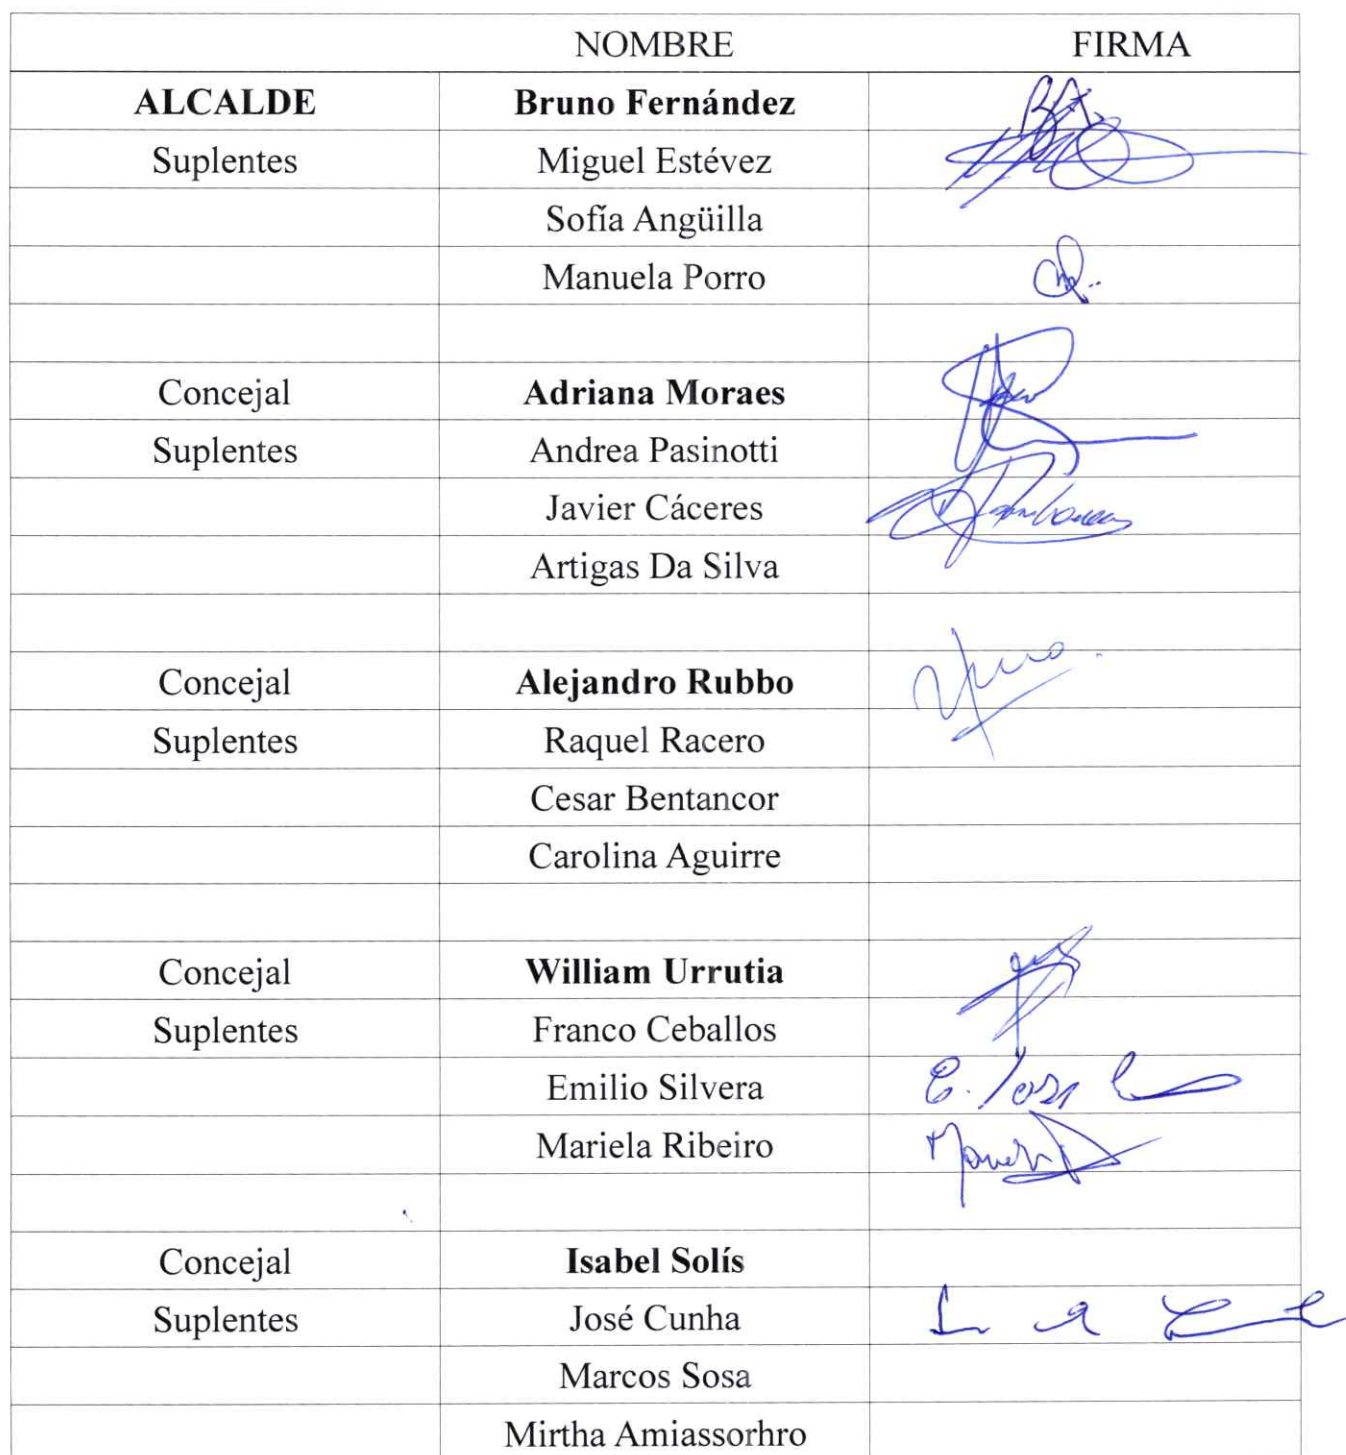 NOMBRE FIRMA
ALCALDE Bruno Fernández
Suplentes Miguel Estévez
Sofía Angüilla
Manuela Porro
Concejal Adriana Moraes
Suplentes Andrea Pasinotti
Javier Cáceres
Artigas Da Silva
Concejal Alejandro Rubbo
Suplentes Raquel Racero
Cesar Bentancor
Carolina Aguirre
Concejal William Urrutia
Suplentes Franco Ceballos
Emilio Silvera
Mariela Ribeiro
Concejal Isabel Solís
Suplentes José Cunha
Marcos Sosa
Mirtha Amiassorhro